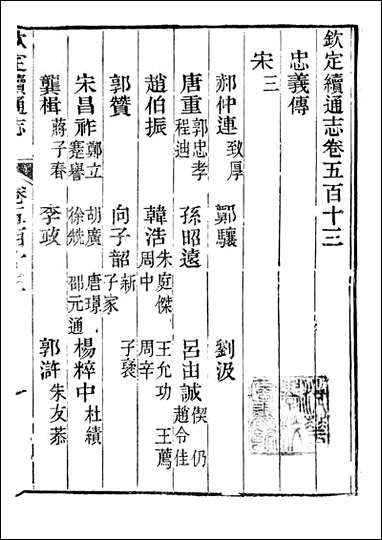 欽定續通志卷五百十三
忠義傳
宋三
郝仲連 致厚 鄭驤 劉汲
唐重 郭忠孝 程迪 孫昭遠 呂由誠 偰仍 趙令佳
趙伯振 韓浩 朱庭傑 王允功 王薦 周中 周辛
郭贊 向子韶 新 子家 子褒
宋昌祚 鄭立 蹇譽 胡廣 唐璟 徐兟 邵元通 楊粹中 杜績
龔楫 蔣子春 李政 郭滸 朱友恭
欽定續通志